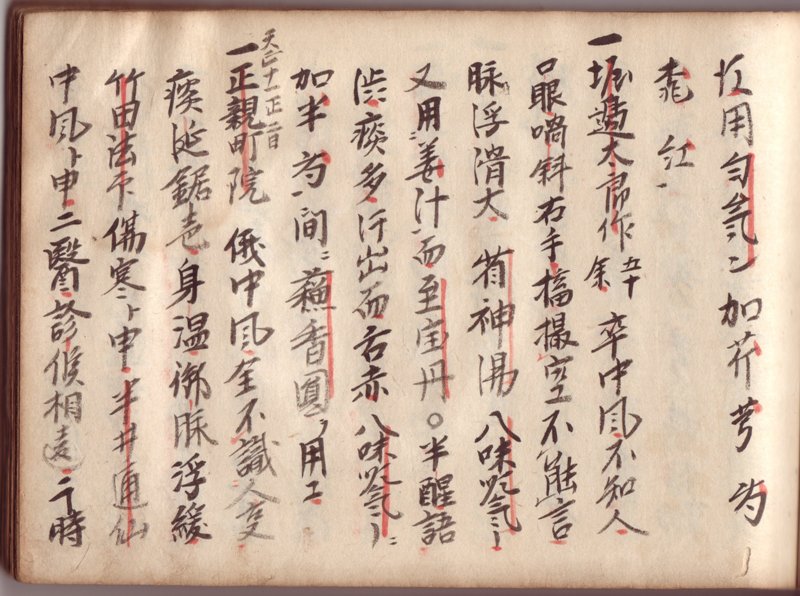 用匀氣ニ加芥芎
桃紅
一堀邊太郎作五十余卒中風不知人
口眼喎斜右手搐撮空不能言
脉浮滑大省神湯八味順氣
又用ニ姜汁而至宝丹。半醒語
渋痰多汗出而舌赤八味順氣ニ
加半芍間ニ蘇香圓用エ
天正十一正二日
一正親町院俄中風全不識人變
痰涎鋸声身温脉浮緩
竹田法印傷寒ト申半井通仙
中風ト申二醫診候相違之時